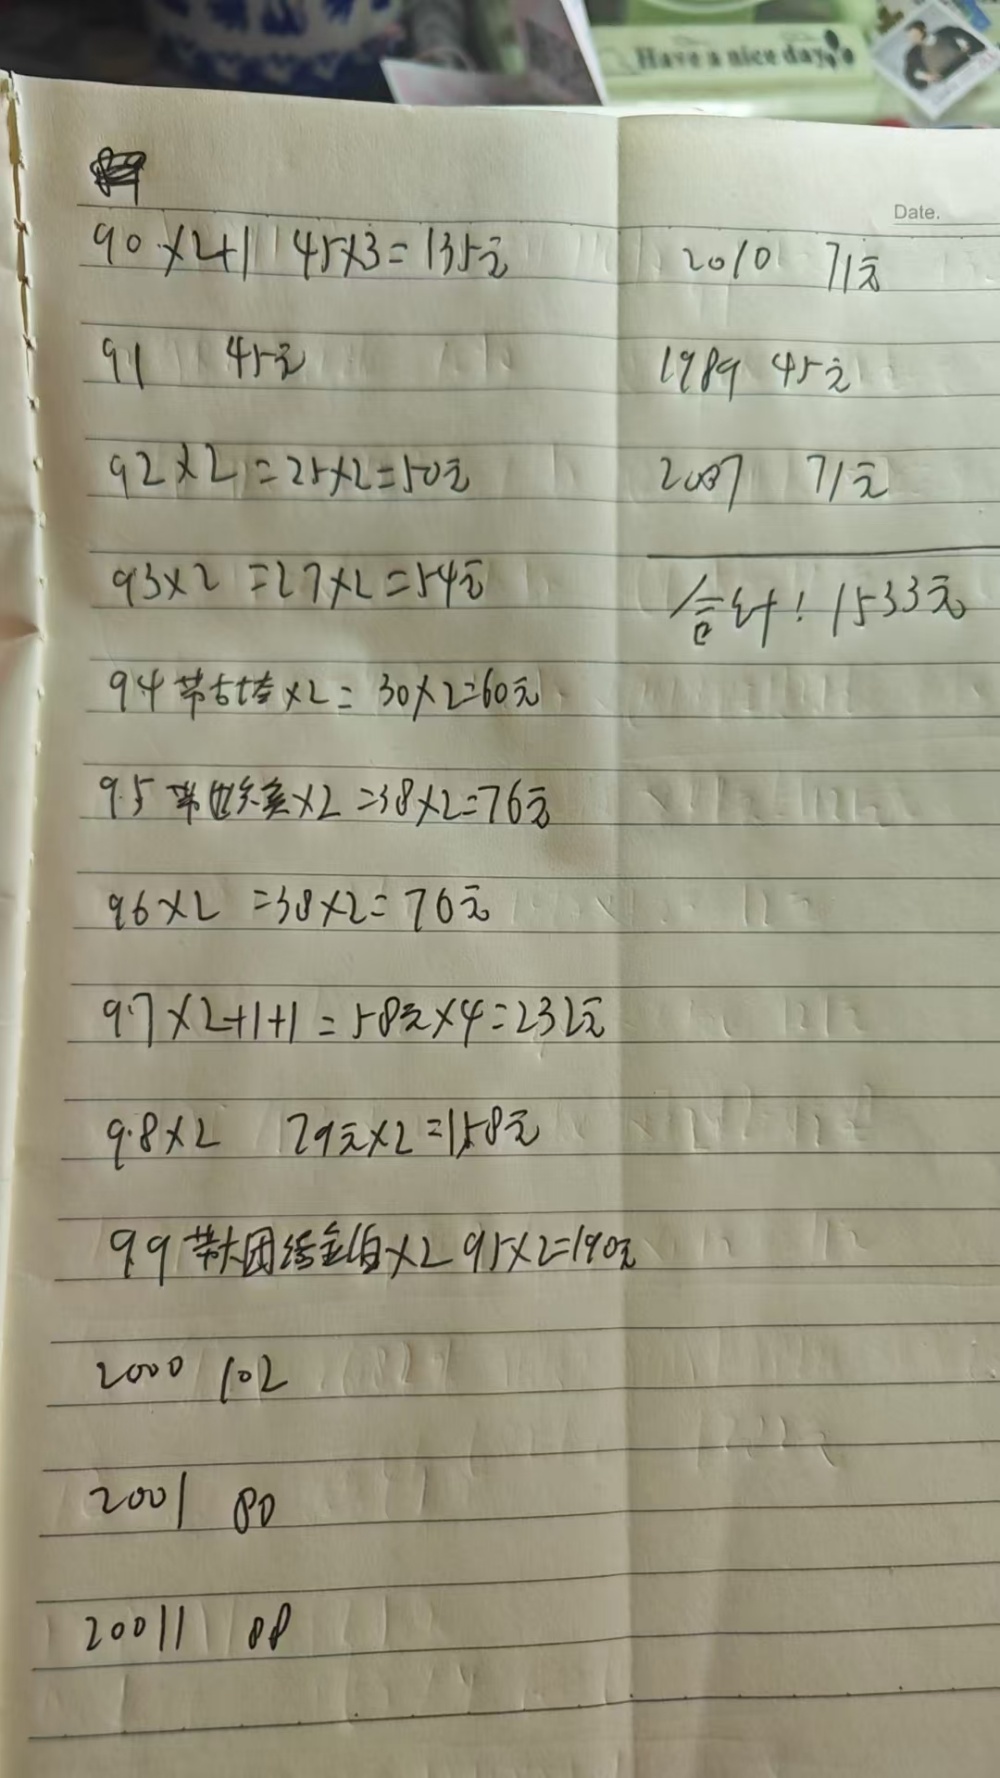 Have a nice day
Date.
90×2+1 45×3=135元
91 45元
92×2=25×2=50元
93×2=27×2=54元
94带古塔×2=30×2=60元
95带×2=38×2=76元
96×2=38×2=76元
97×2+1+1=58元×4=232元
98×2 79元×2=158元
99带大团结全×2 95×2=190元
2000 102
2001 80
20011 88
2010 71元
1989 45元
2007 71元
合计:1533元